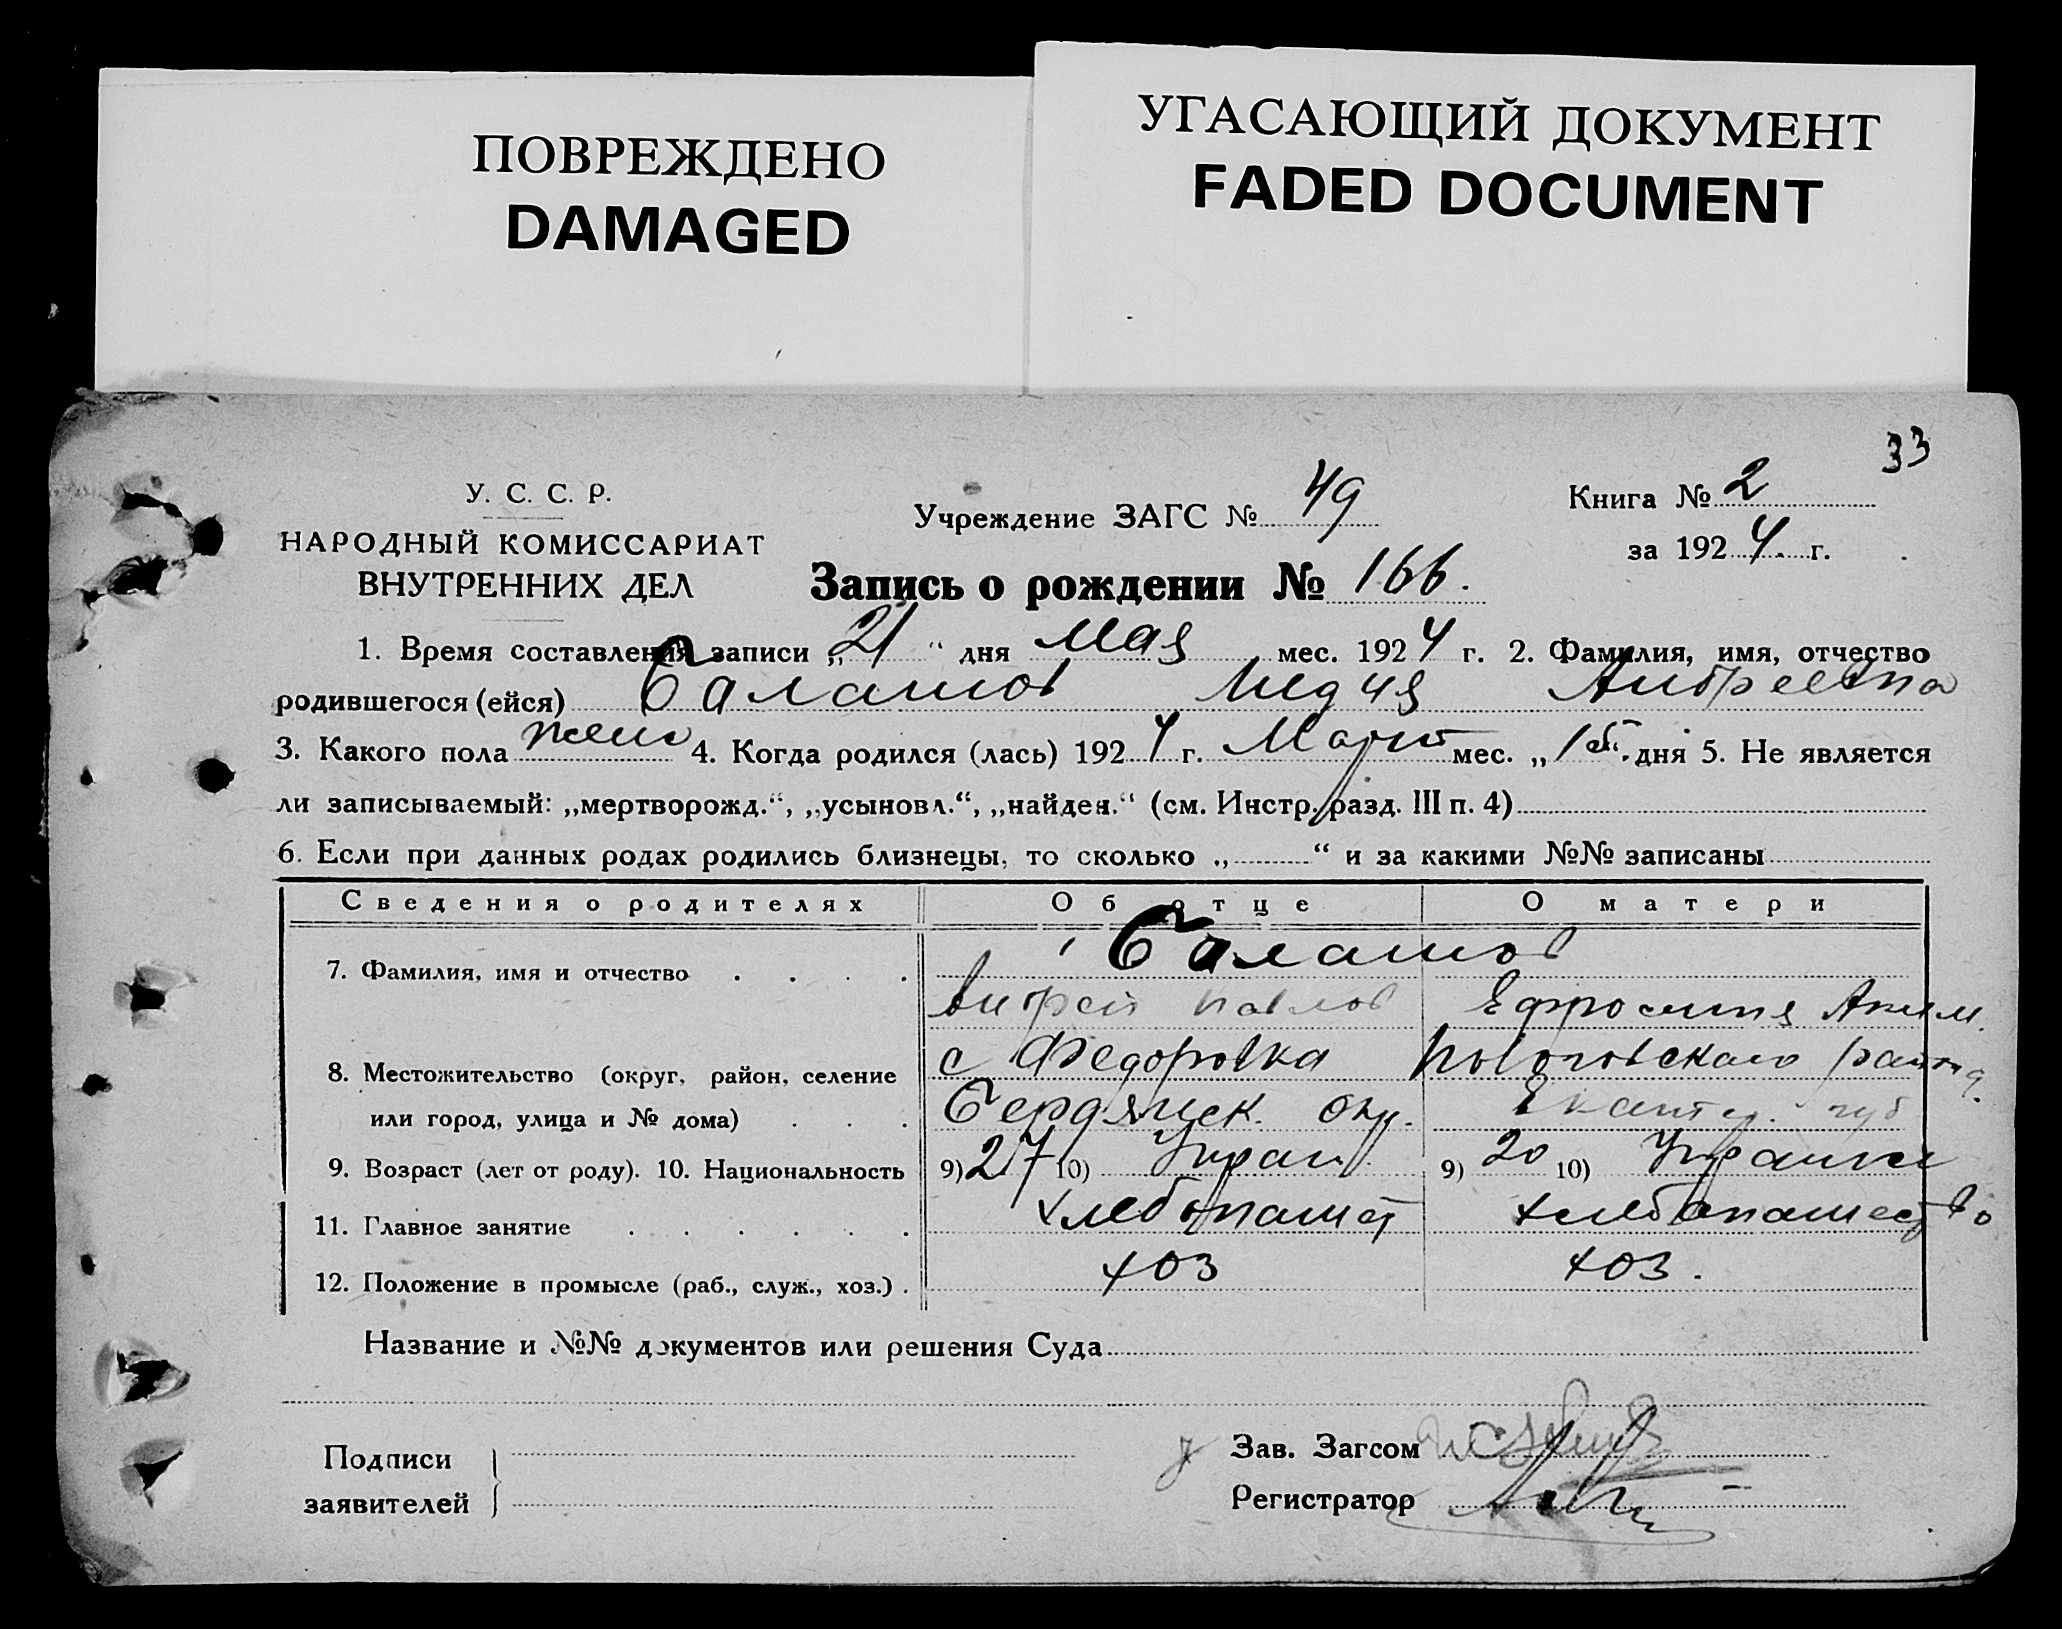 ПОВРЕЖДЕНО
DAMAGED
УГАСАЮЩИЙ ДОКУМЕНТ
FADED DOCUMENT
33
У. С. С. Р.
НАРОДНЫЙ КОМИССАРИАТ
ВНУТРЕННИХ ДЕЛ
Учреждение ЗАГС № 49
Книга № 2
за 1924 г.
Запись о рождении № 166.
1. Время составления записи „21“ дня Мая мес. 1924 г. 2. Фамилия, имя, отчество
родившегося (ейся) Балашов Лидия Андреевна
3. Какого пола жен 4. Когда родился (лась) 1924 г. Март мес. „15“ дня 5. Не является
ли записываемый: „мертворожд.“, „усыновл.“, „найден.“ (см. Инстр. разд. III п. 4)
6. Если при данных родах родились близнецы, то сколько „ “ и за какими №№ записаны
Сведения о родителях Об отце О матери
7. Фамилия, имя и отчество Балашов
Андрей Павлов Ефросиния Аким.
8. Местожительство (округ, район, селение с Федоровка Пологовского района
или город, улица и № дома) Бердянск. окр. Екатер. губ
9. Возраст (лет от роду). 10. Национальность 9) 27 10) Украин. 9) 20 10) Украинка
11. Главное занятие хлебопашест хлебопашество
12. Положение в промысле (раб., служ., хоз.) хоз хоз.
Название и №№ документов или решения Суда
Подписи
заявителей
Зав. Загсом
Регистратор